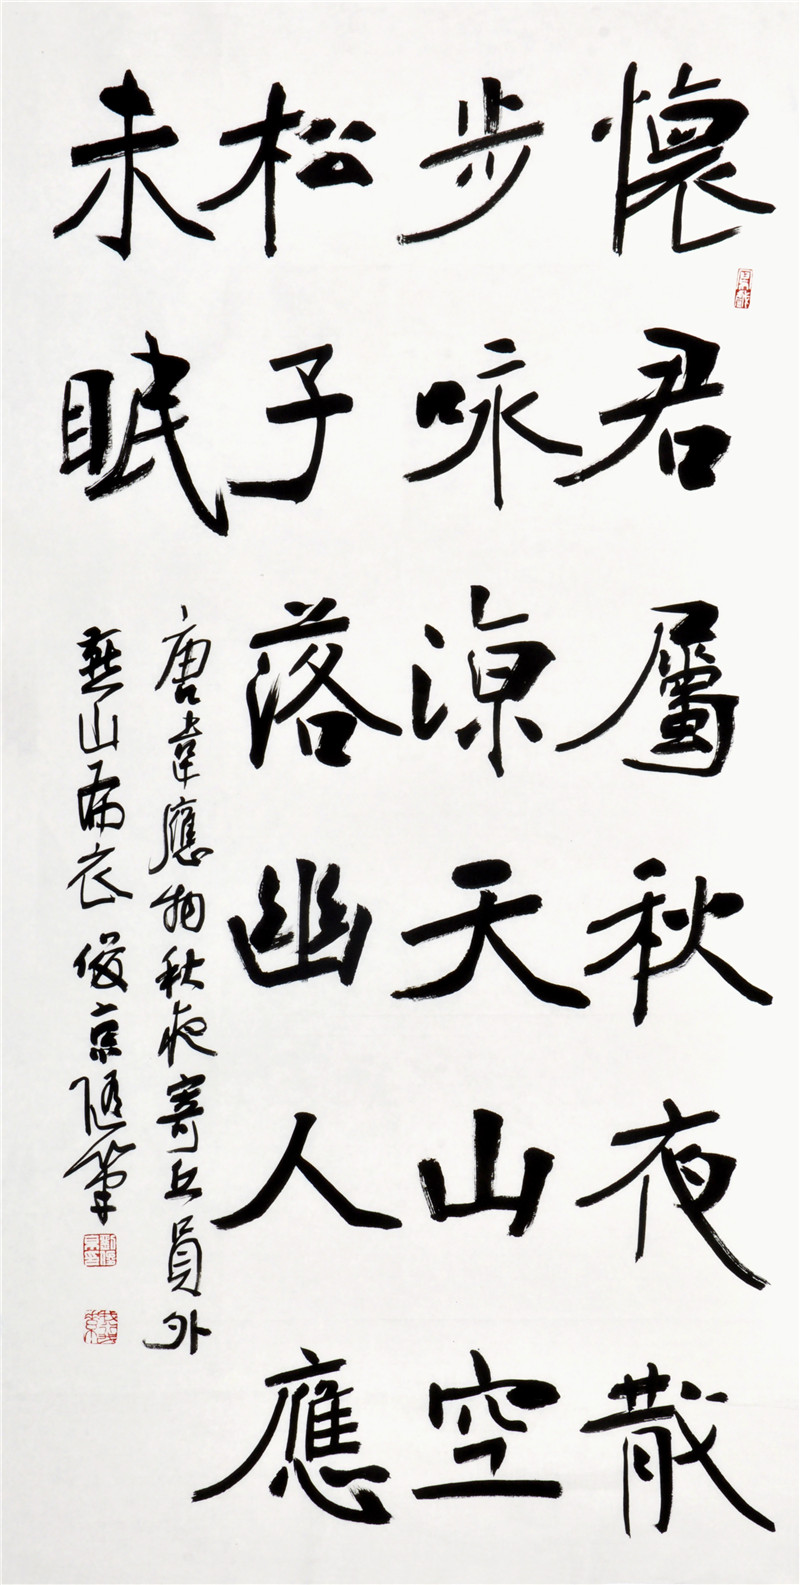 懷君屬秋夜散
步咏涼天山空
松子落幽人應
未眠
唐韋應物秋夜寄丘員外
燕山布衣俊京随筆